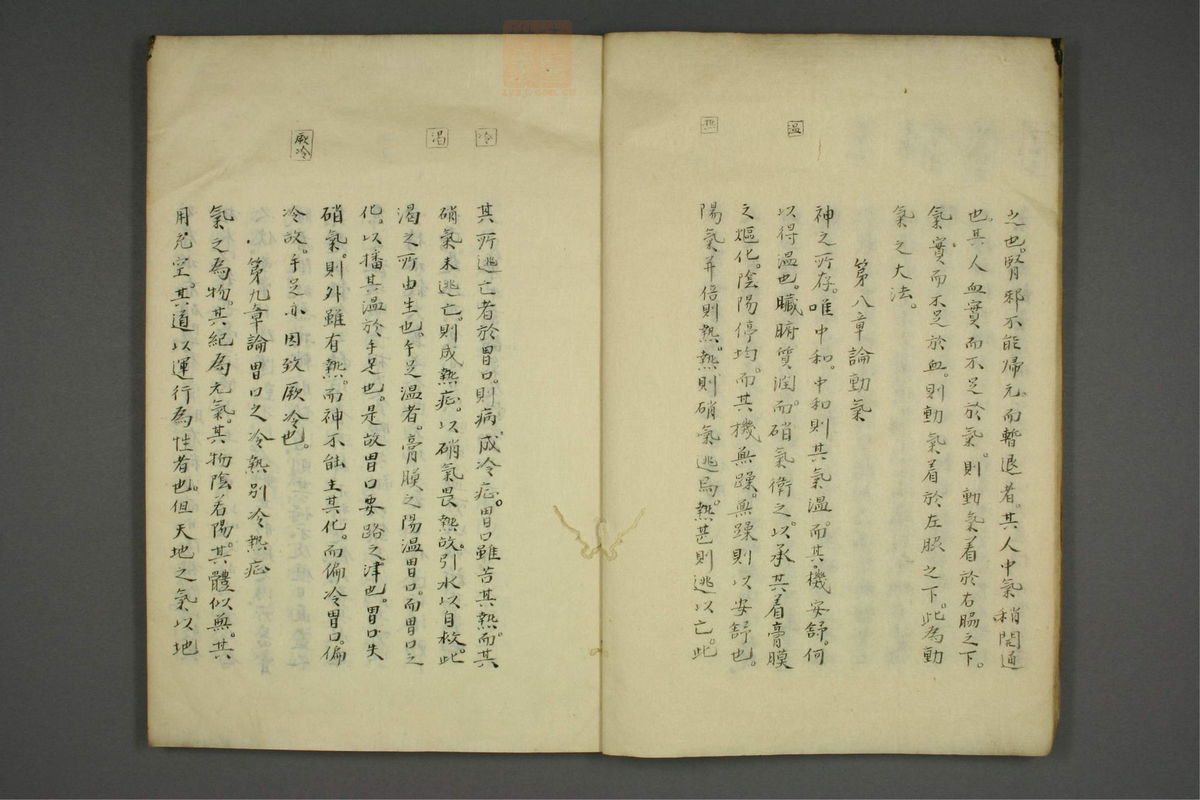 之也。腎邪不能帰元。而暫退者。其人中氣稍開通
也。其人血實而不足於氣。則動氣着於右脇之下。
氣實而不足於血。則動氣着於左脹之下。此為動
氣之大法。
第八章論動氣
温
神之所存。唯中和。中和則其氣温。而其機安舒。何
以得温也。臓腑質潤。而硝氣衛之。以承其着膏膜
之熰化。陰陽停均。而其機無躁。無躁則以安舒也。
熱
陽氣并倍則熱。熱則硝氣逃焉。熱甚則逃以亡。此
冷
其所逃亡者於胃口。則病成冷症。胃口雖苦其熱。而其
渇
硝氣未逃亡。則成熱症。以硝氣畏熱故。引水以自救。此
渇之所由生也。手足温者。膏膜之陽温胃口。而胃口之
化。以播其温於手足也。是故胃口要路之津也。胃口失
硝氣。則外雖有熱。而神不能主其化。而偏冷胃口。偏
厥冷
冷故。手足亦因致厥冷也。
第九章論胃口之冷熱別冷熱症
氣之為物。其紀為元氣。其物陰着陽。其體似無。其
用充空。其道以運行為性者也。但天地之氣以地